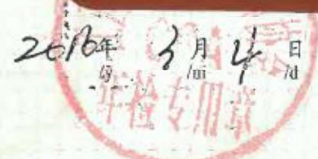 2016年 3月 4日
/y /m /d
年检专用章